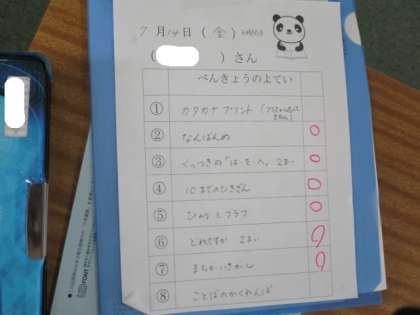 7月14日(金)
( )さん
べんきょうのよてい
① カタカナプリント
② なんばんめ
③ くっつきの「は・を・へ」 2まい
④ 10までのひきざん
⑤ ひょうとグラフ
⑥ どれですか 2まい
⑦ まちがいさがし
⑧ ことばのかくれんぼ